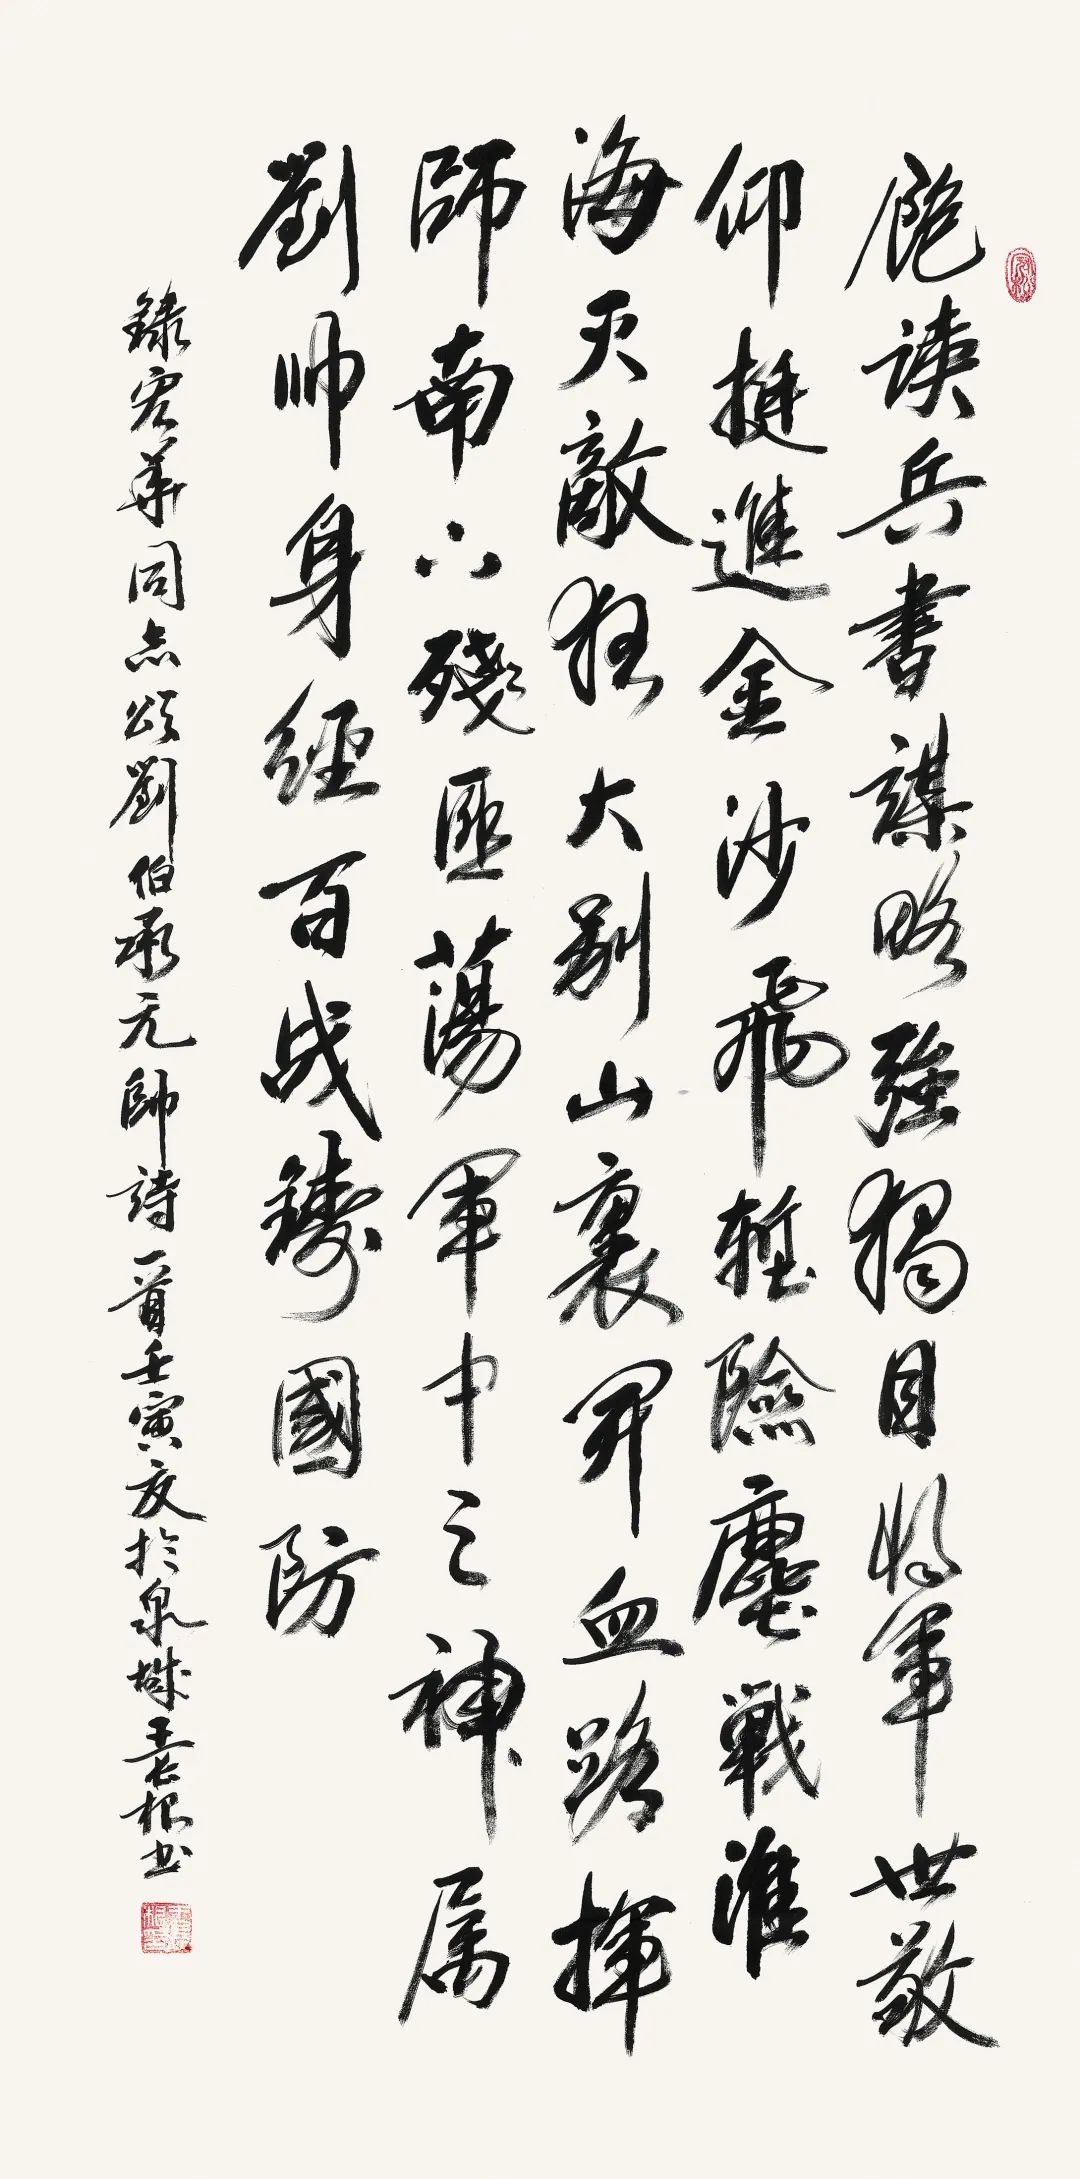 飽读兵書謀略強獨目将軍世敬
仰挺進金沙飛塹險鏖戰淮
海灭敵狂大别山裏開血路揮
師南下殘匪蕩軍中之神属
劉帅身經百战鑄國防
錄宏華同志頌劉伯承元帥詩一首壬寅夜於泉城王長根书